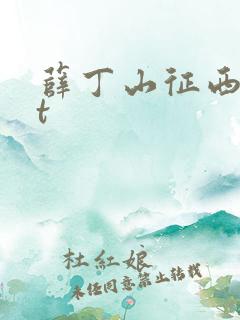 薛丁山征西
t
杜紅娘
未经同意禁止转载